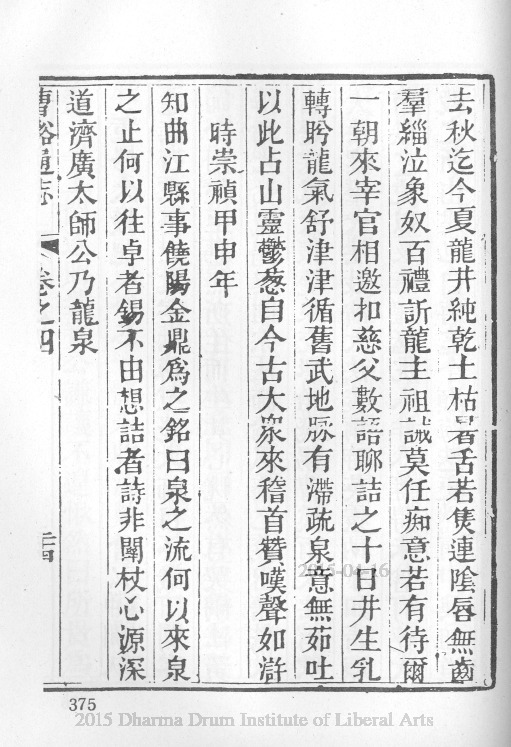 去秋迄今夏龍井純乾土枯㫺舌若隻連陰唇無齒
羣緇泣象奴百禮訢龍主祖誠莫任痴意若有待爾
一朝來宰官相邀扣慈父數語聊詰之十日井生乳
轉盻龍氣舒津津循舊武地脉有滯疏泉意無茹吐
以此占山靈鬱葱自今古大衆來稽首贊嘆聲如滸
時崇禎甲申年
知曲江縣事饒陽金鼎爲之銘曰泉之流何以來泉
之止何以往卓者錫不由想詰者詩非闡杖心源深
道濟廣太師公乃龍泉
曹谿通志
卷之四
二十四
375
2015-04-16
2015 Dharma Drum Institute of Liberal Arts